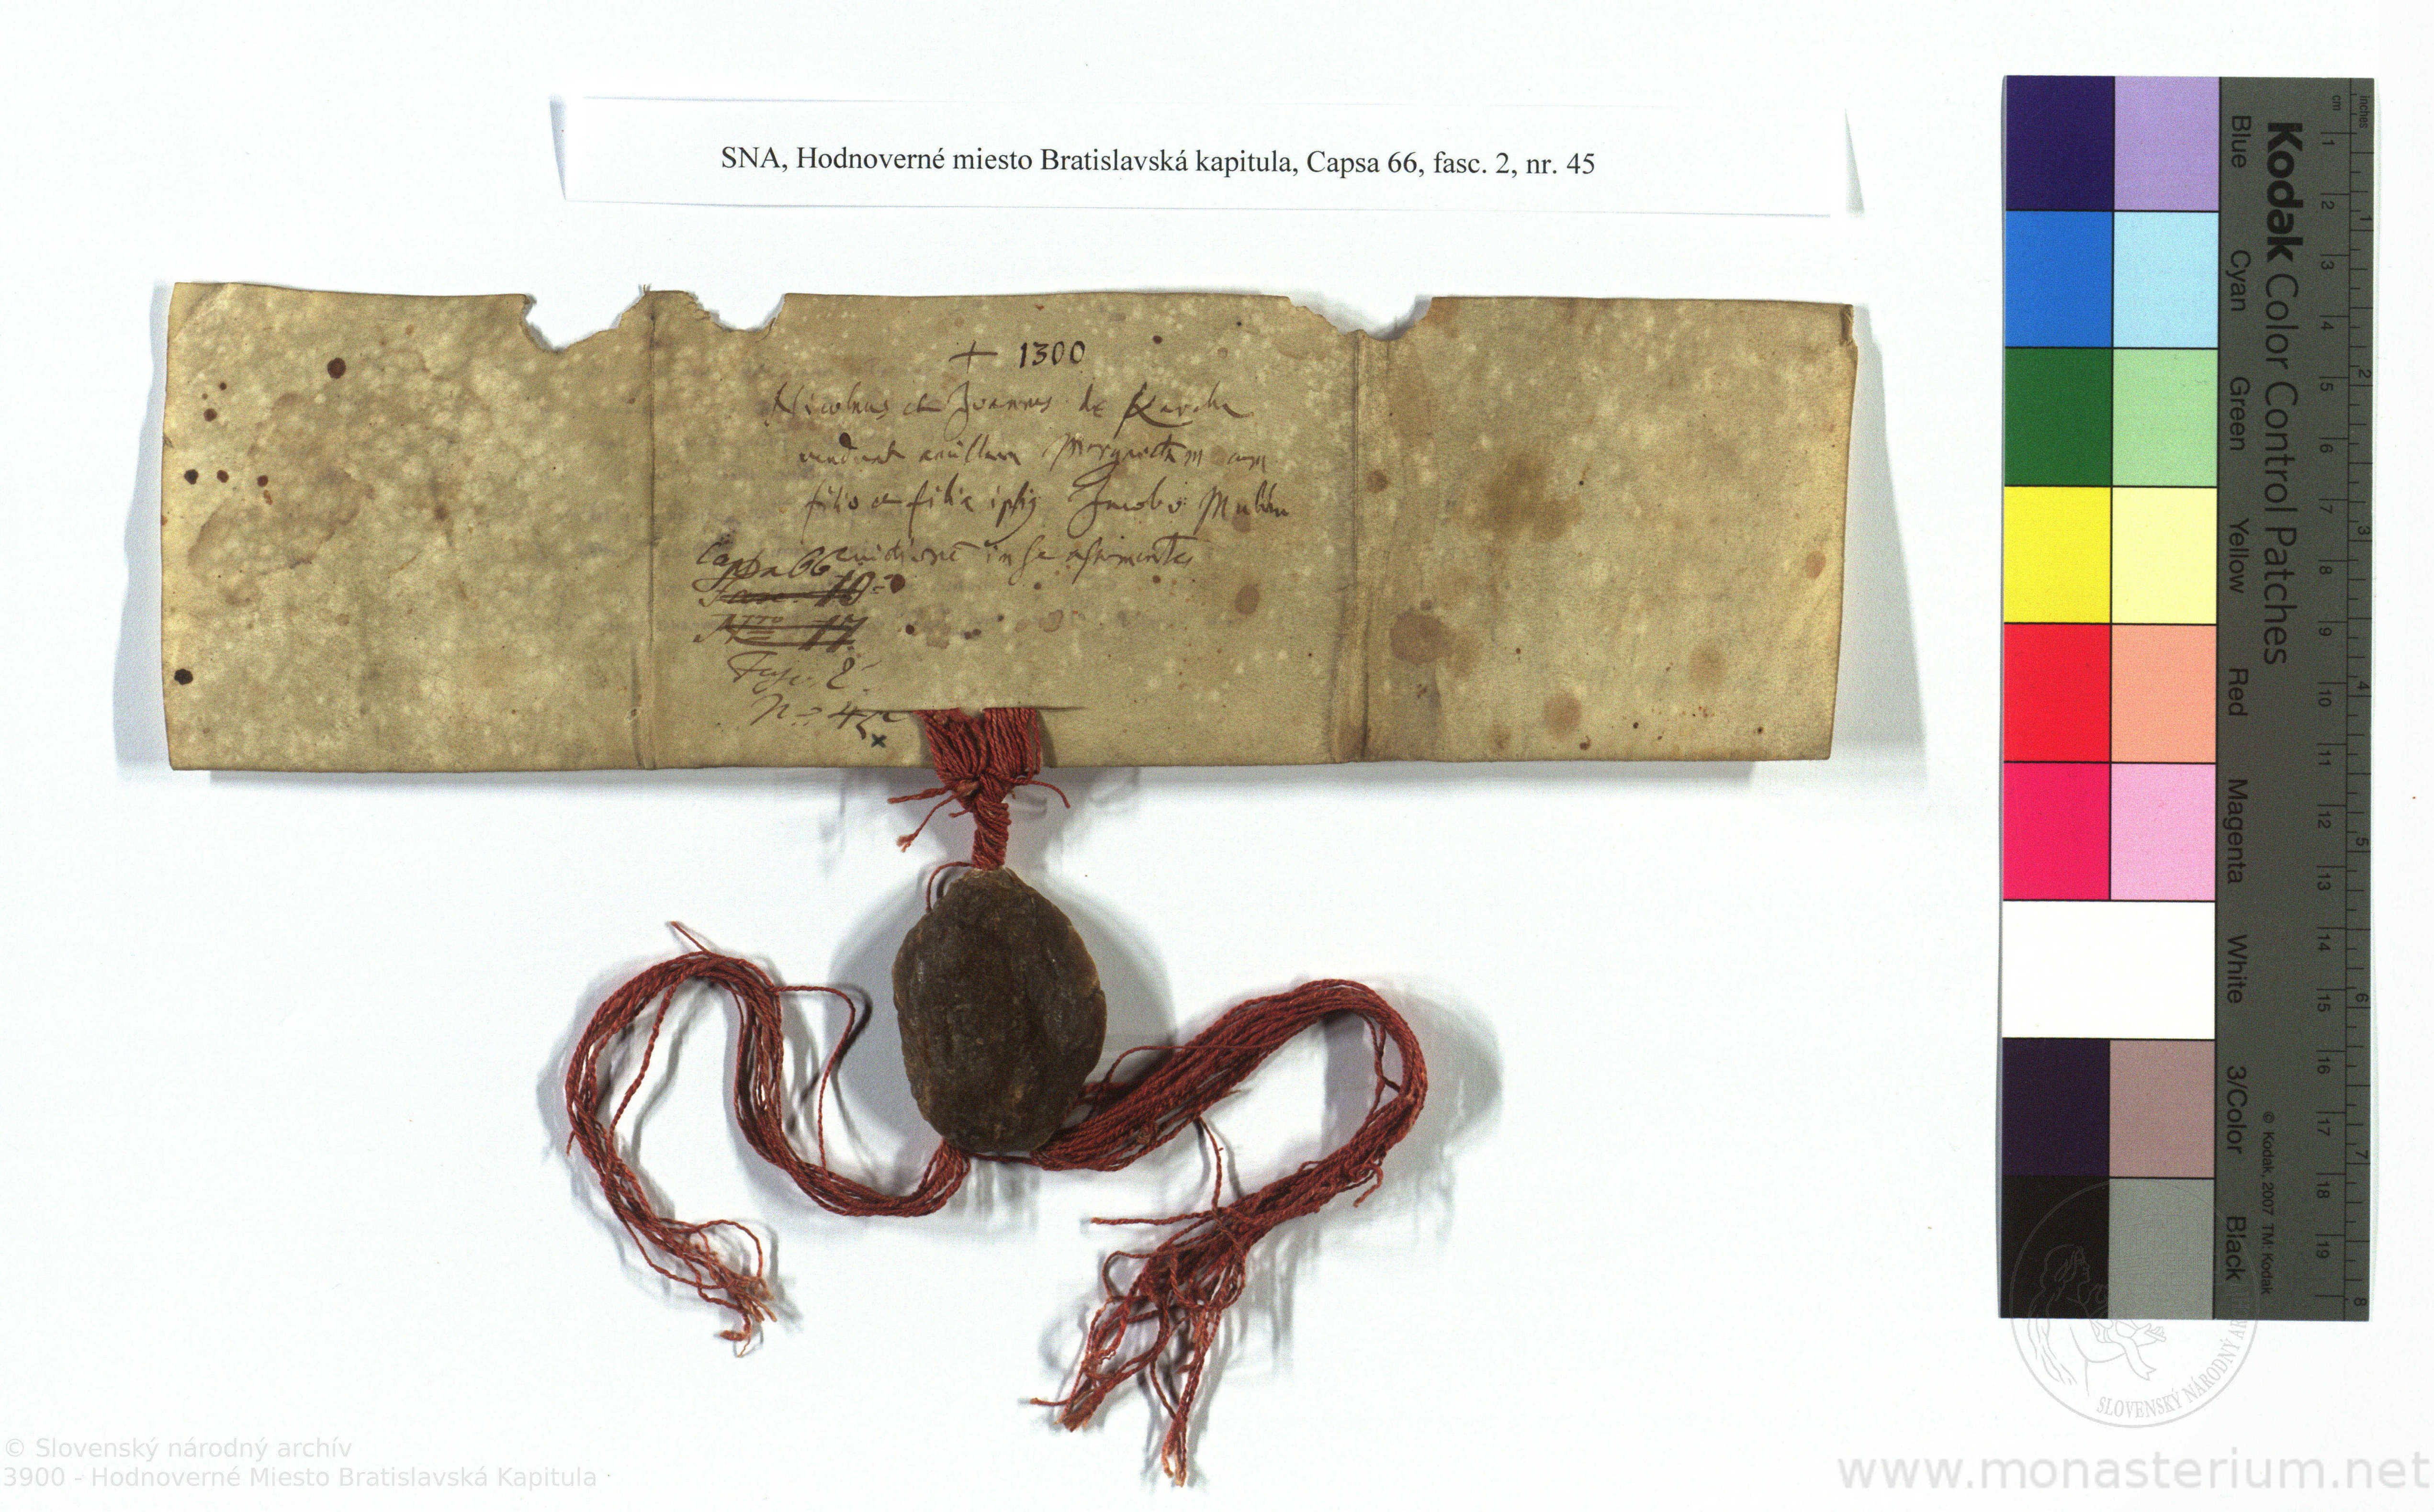 SNA, Hodnoverné miesto Bratislavská kapitula, Capsa 66, fasc. 2, nr. 45
+ 1300
Nicolaus et Joannes de Karcha
vendunt ancillam Margaretam cum
filio et filia ipsius Jacobo
in se
Capsa 66
Fasc. 10
Nro 17
Fasc. 2.
No. 45
x
Kodak Color Control Patches
Blue Cyan Green Yellow Red Magenta White 3/Color Black
© Kodak, 2007 TM: Kodak
inches 1 2 3 4 5 6 7 8
cm 1 2 3 4 5 6 7 8 9 10 11 12 13 14 15 16 17 18 19
SLOVENSKÝ NÁRODNÝ
© Slovenský národný archív
3900 - Hodnoverné Miesto Bratislavská Kapitula
www.monasterium.net